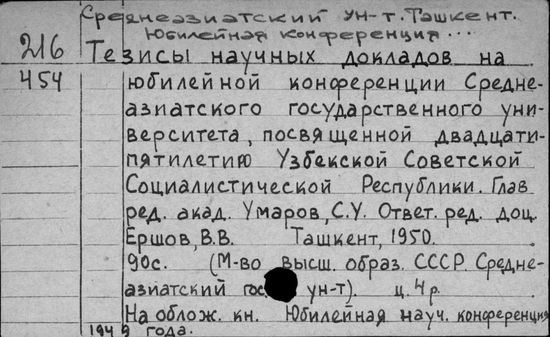 Среднеазиатский ун-т. Ташкент.
Юбилейная конференция...
216 Тезисы научных докладов на
454 юбилейной конференции Средне-
азиатского государственного уни-
верситета, посвященной двадцати-
пятилетию Узбекской Советской
Социалистической Республики. Глав
ред. акад. Умаров, С.У. Ответ. ред. доц.
Ершов, В.В. Ташкент, 1950.
90с. (М-во высш. образ. СССР. Средне-
азиатский гос. ун-т). ц. 4р.
На облож. кн. Юбилейная науч. конференция
1949 года.